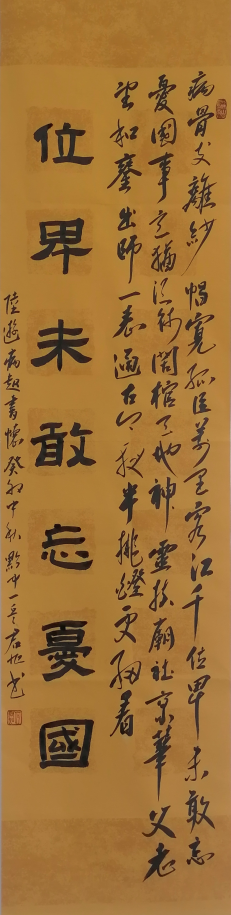 病骨支離紗帽寬孤臣萬里客江干位卑未敢忘
憂國事定猶須待闔棺天地神靈扶廟社京華父老
望和鑾出師一表通古今夜半挑鐙更細看
位卑未敢忘憂國
陸遊病起書懷癸卯中秋黔中一兵君旭书